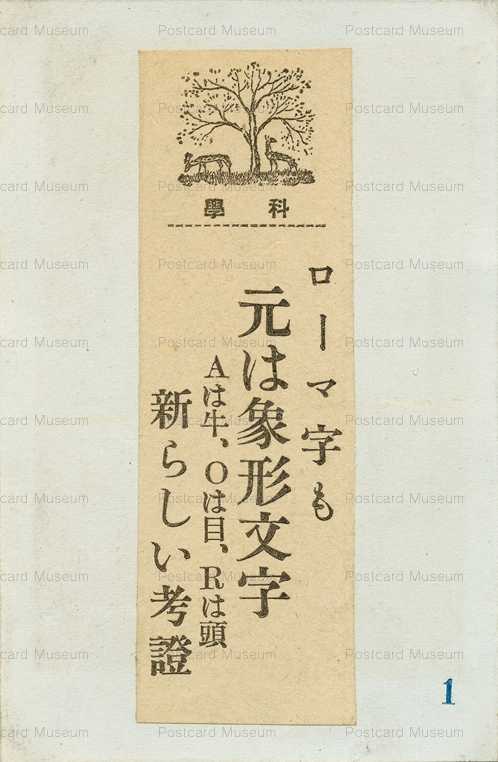 科學
ローマ字も
元は象形文字
Aは牛、Oは目、Rは頭
新らしい考證
1
Postcard Museum